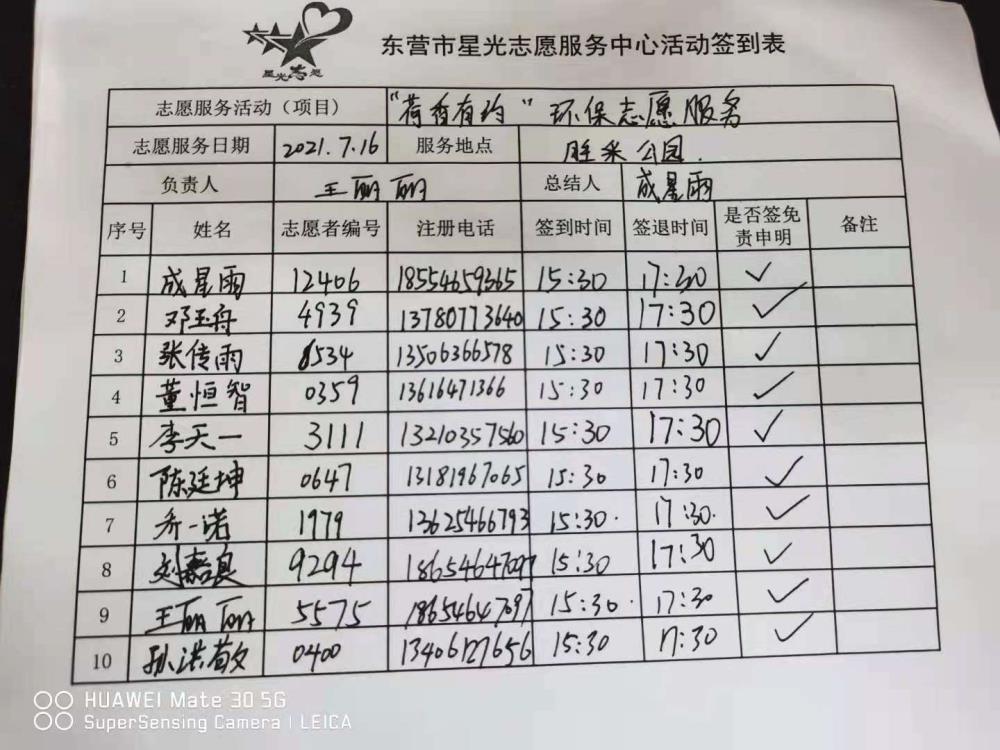 星光志愿
东营市星光志愿服务中心活动签到表
志愿服务活动（项目） “荷香有约”环保志愿服务
志愿服务日期 2021.7.16 服务地点 胜采公园.
负责人 王丽丽 总结人 成星雨
序号 姓名 志愿者编号 注册电话 签到时间 签退时间 是否签免责申明 备注
1 成星雨 12406 18554659365 15:30 17:30 ✓
2 邓玉舟 4939 13780773640 15:30 17:30 ✓
3 张传雨 8534 13506366578 15:30 17:30 ✓
4 董恒智 0359 13616471366 15:30 17:30 ✓
5 李天一 3111 13210357560 15:30 17:30 ✓
6 陈廷坤 0647 13181967065 15:30 17:30 ✓
7 乔一诺 1979 13625466793 15:30. 17:30. ✓
8 刘嘉良 9294 18654647097 15:30 17:30 ✓
9 王丽丽 5575 18654647097 15:30. 17:30 ✓
10 孙洪 0400 13406127656 15:30 17:30 ✓
HUAWEI Mate 30 5G
SuperSensing Camera | LEICA